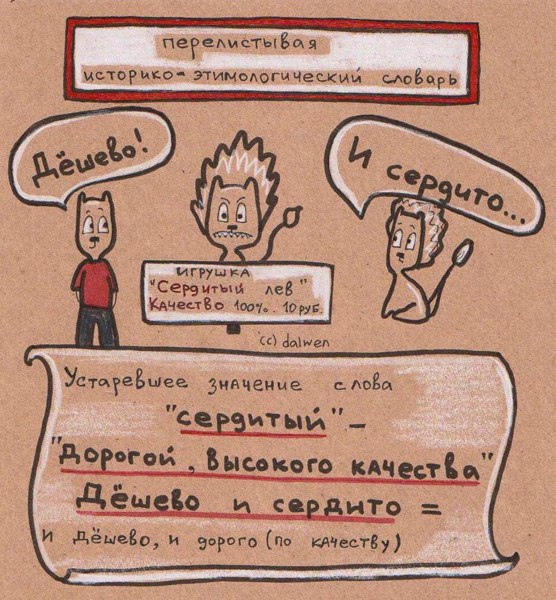 перелистывая
историко-этимологический словарь
Дёшево!
И сердито...
ИГРУШКА
"Сердитый лев"
Качество 100%. 10 руб.
(c) dalwen
Устаревшее значение слова
"сердитый" –
"Дорогой, высокого качества"
Дёшево и сердито =
и дёшево, и дорого (по качеству)